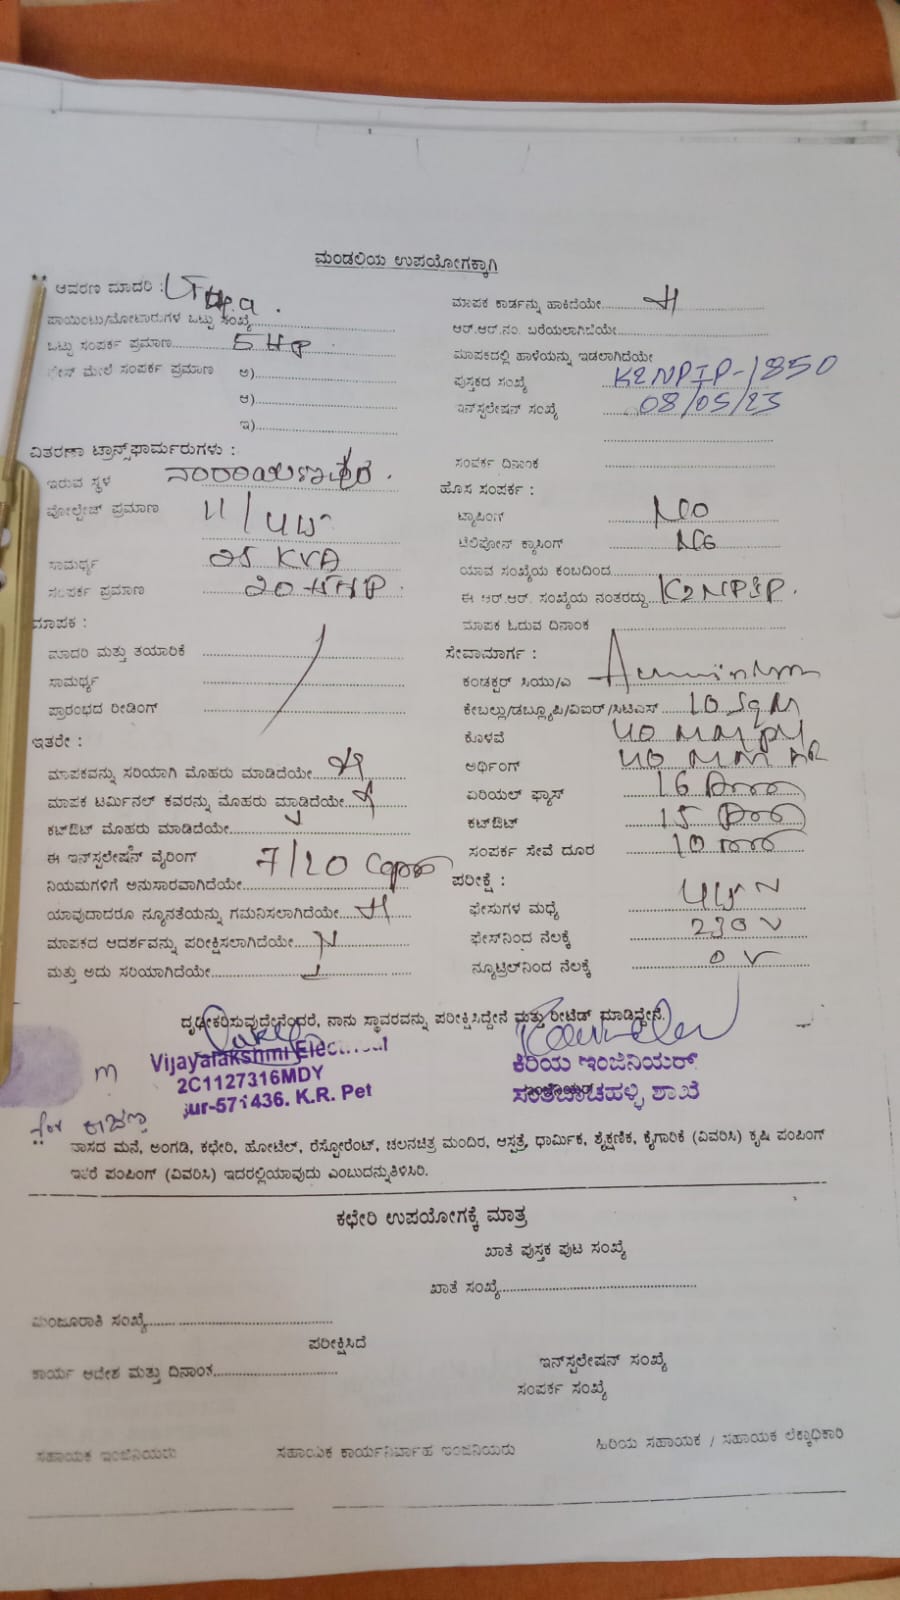 ಮಂಡಲಿಯ ಉಪಯೋಗಕ್ಕಾಗಿ
ಆವರಣ ಮಾದರಿ :
ಪಾಯಿಂಟು/ಮೋಟಾರುಗಳ ಒಟ್ಟು ಸಂಖ್ಯೆ
ಒಟ್ಟು ಸಂಪರ್ಕ ಪ್ರಮಾಣ 5 HP
ಮೇಲೆ ಸಂಪರ್ಕ ಪ್ರಮಾಣ ಅ)
ಆ)
ಇ)
ವಿತರಣಾ ಟ್ರಾನ್ಸ್‌ಫಾರ್ಮರುಗಳು :
ಇರುವ ಸ್ಥಳ
ವೋಲ್ಟೇಜ್ ಪ್ರಮಾಣ 11/
ಸಾಮರ್ಥ್ಯ 25 KVA
ಸಂಪರ್ಕ ಪ್ರಮಾಣ 20 HP
ಮಾಪಕ :
ಮಾದರಿ ಮತ್ತು ತಯಾರಿಕೆ
ಸಾಮರ್ಥ್ಯ
ಪ್ರಾರಂಭದ ರೀಡಿಂಗ್
ಇತರೇ :
ಮಾಪಕವನ್ನು ಸರಿಯಾಗಿ ಮೊಹರು ಮಾಡಿದೆಯೇ
ಮಾಪಕ ಟರ್ಮಿನಲ್ ಕವರನ್ನು ಮೊಹರು ಮಾಡ್ತಿದೆಯೇ
ಕಟ್‌ಔಟ್ ಮೊಹರು ಮಾಡಿದೆಯೇ
ಈ ಇನ್‌ಸ್ಟಲೇಷನ್ ವೈರಿಂಗ್ 7/20
ನಿಯಮಗಳಿಗೆ ಅನುಸಾರವಾಗಿದೆಯೇ
ಯಾವುದಾದರೂ ನ್ಯೂನತೆಯನ್ನು ಗಮನಿಸಲಾಗಿದೆಯೇ
ಮಾಪಕದ ಆದರ್ಶವನ್ನು ಪರೀಕ್ಷಿಸಲಾಗಿದೆಯೇ
ಮತ್ತು ಅದು ಸರಿಯಾಗಿದೆಯೇ
ಮಾಪಕ ಕಾರ್ಡನ್ನು ಹಾಕಿದೆಯೇ
ಆರ್.ಆರ್.ನಂ. ಬರೆಯಲಾಗಿದೆಯೇ
ಮಾಪಕದಲ್ಲಿ ಹಾಳೆಯನ್ನು ಇಡಲಾಗಿದೆಯೇ
ಪುಸ್ತಕದ ಸಂಖ್ಯೆ K2NPIP-1850
ಇನ್‌ಸ್ಟಲೇಷನ್ ಸಂಖ್ಯೆ 08/05/23
ಸಂಪರ್ಕ ದಿನಾಂಕ
ಹೊಸ ಸಂಪರ್ಕ :
ಟ್ಯಾಪಿಂಗ್ NO
ಟೆಲಿಫೋನ್ ಕ್ರಾಸಿಂಗ್ NO
ಯಾವ ಸಂಖ್ಯೆಯ ಕಂಬದಿಂದ
ಈ ಆರ್.ಆರ್. ಸಂಖ್ಯೆಯ ನಂತರದ್ದು K2NPIP.
ಮಾಪಕ ಓದುವ ದಿನಾಂಕ
ಸೇವಾಮಾರ್ಗ :
ಕಂಡಕ್ಟರ್ ಸಿಯು/ಎ
ಕೇಬಲ್ಲು/ಡಬ್ಲ್ಯೂಪಿ/ವಿಐಆರ್/ಸಿಟಿಎಸ್ 10 SqM
ಕೊಳವೆ 40 MM
ಅರ್ಥಿಂಗ್ 40 MM
ಏರಿಯಲ್ ಫ್ಯೂಸ್ 16
ಕಟ್‌ಔಟ್ 15
ಸಂಪರ್ಕ ಸೇವೆ ದೂರ 10
ಪರೀಕ್ಷೆ :
ಫೇಸುಗಳ ಮಧ್ಯೆ
ಫೇಸ್‌ನಿಂದ ನೆಲಕ್ಕೆ 230 V
ನ್ಯೂಟ್ರಲ್‌ನಿಂದ ನೆಲಕ್ಕೆ 0 V
ದೃಢೀಕರಿಸುವುದೇನೆಂದರೆ, ನಾನು ಸ್ಥಾವರವನ್ನು ಪರೀಕ್ಷಿಸಿದ್ದೇನೆ ಮತ್ತು ರೀಟೆಡ್ ಮಾಡಿದ್ದೇನೆ.
Vijayalakshmi Electrical
2C1127316MDY
571436. K.R. Pet
ಕಿರಿಯ ಇಂಜಿನಿಯರ್
ಸಂತೇಬಾಚಹಳ್ಳಿ ಶಾಖೆ
ವಾಸದ ಮನೆ, ಅಂಗಡಿ, ಕಛೇರಿ, ಹೋಟೆಲ್, ರೆಸ್ಟೋರೆಂಟ್, ಚಲನಚಿತ್ರ ಮಂದಿರ, ಆಸ್ಪತ್ರೆ, ಧಾರ್ಮಿಕ, ಶೈಕ್ಷಣಿಕ, ಕೈಗಾರಿಕೆ (ವಿವರಿಸಿ) ಕೃಷಿ ಪಂಪಿಂಗ್
ಇತರೆ ಪಂಪಿಂಗ್ (ವಿವರಿಸಿ) ಇದರಲ್ಲಿಯಾವುದು ಎಂಬುದನ್ನುತಿಳಿಸಿರಿ.
ಕಛೇರಿ ಉಪಯೋಗಕ್ಕೆ ಮಾತ್ರ
ಖಾತೆ ಪುಸ್ತಕ ಪುಟ ಸಂಖ್ಯೆ
ಖಾತೆ ಸಂಖ್ಯೆ
ಮಂಜೂರಾತಿ ಸಂಖ್ಯೆ
ಪರೀಕ್ಷಿಸಿದೆ
ಕಾರ್ಯ ಆದೇಶ ಮತ್ತು ದಿನಾಂಕ
ಇನ್‌ಸ್ಟಲೇಷನ್ ಸಂಖ್ಯೆ
ಸಂಪರ್ಕ ಸಂಖ್ಯೆ
ಸಹಾಯಕ ಇಂಜಿನಿಯರು ಸಹಾಯಕ ಕಾರ್ಯನಿರ್ವಾಹ ಇಂಜಿನಿಯರು ಹಿರಿಯ ಸಹಾಯಕ / ಸಹಾಯಕ ಲೆಕ್ಕಾಧಿಕಾರಿ